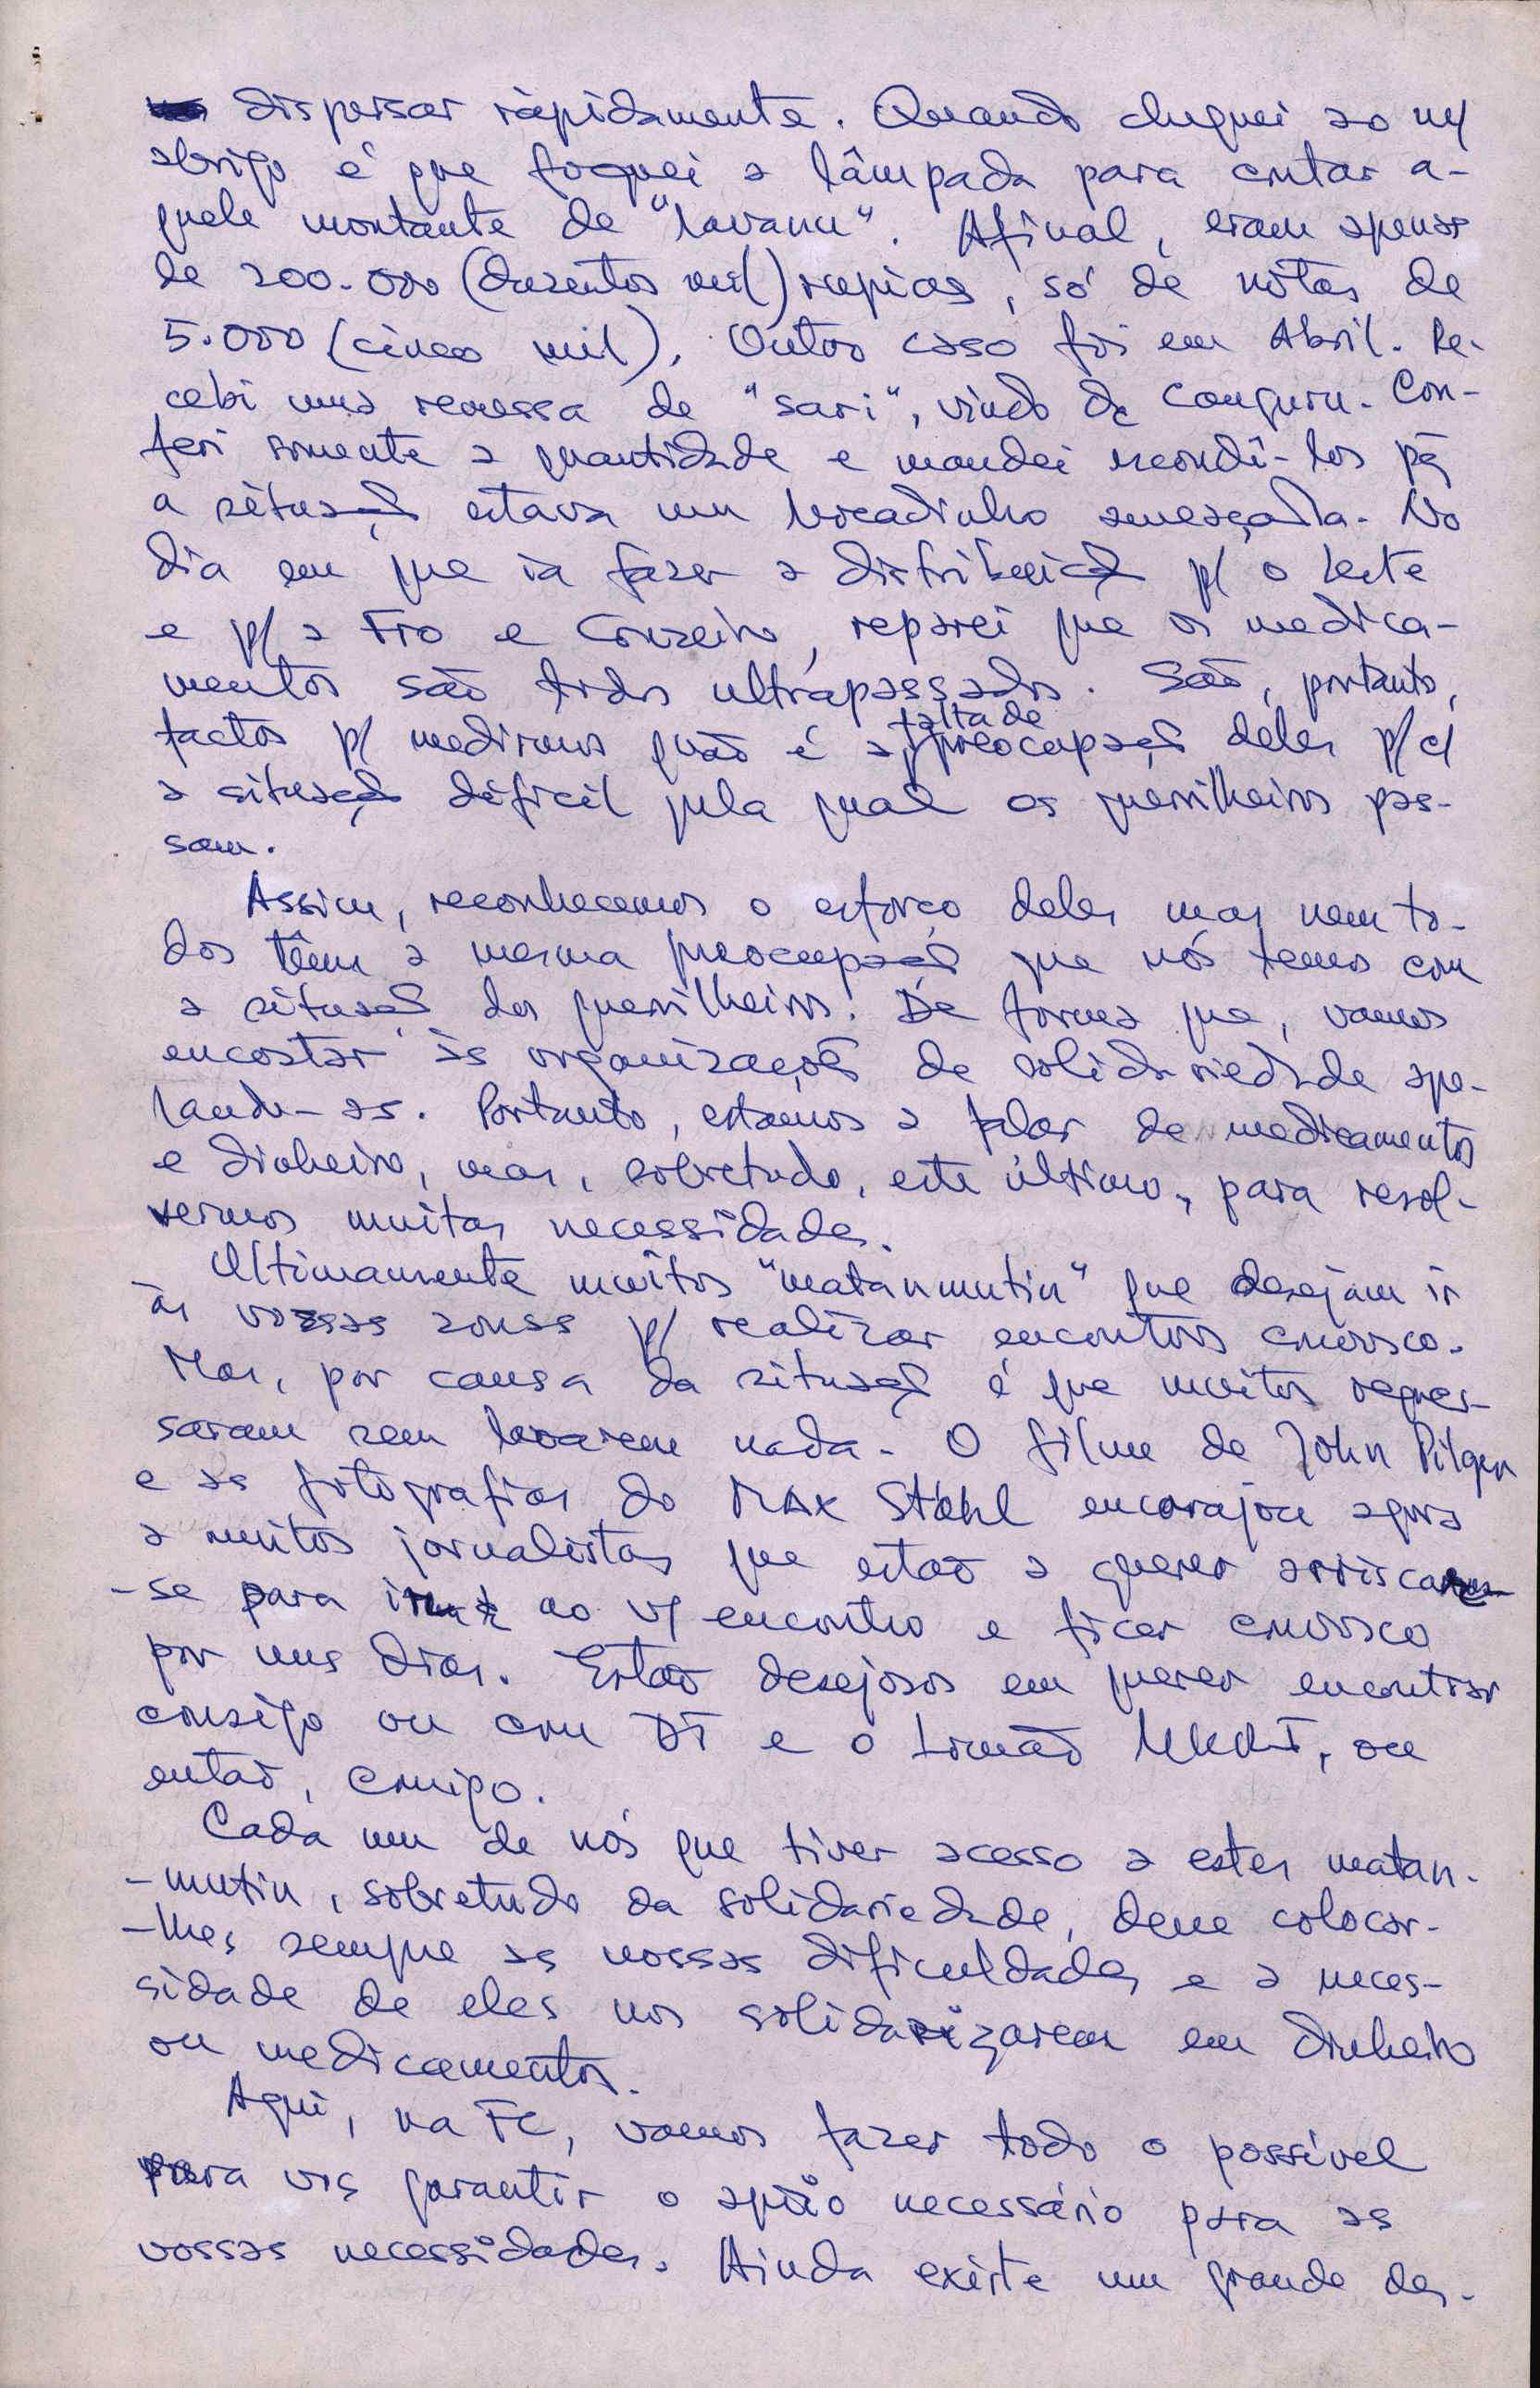 dispersar ràpidamente. Quando cheguei ao m/
abrigo é que foquei a lâmpada para contar a-
quele montante de "lavanu". Afinal, eram apenas
de 200.000 (duzentos mil) rupias, só de notas de
5.000 (cinco mil). Outro caso foi em Abril. Re-
cebi uma remessa de "sari", vindo de Canguru. Con-
feri somente a quantidade e mandei escondê-los pq
a situação estava um bocadinho ameaçada. No
dia em que ia fazer a distribuição p/ o Leste
e p/ a Fro e Cruzeiro, reparei que os medica-
mentos são todos ultrapassados. São, portanto,
factos p/ medirmos quão é a falta de preocupação deles p/ c/
a situação difícil pela qual os guerrilheiros pas-
sam.
Assim, reconhecemos o esforço deles mas nem to-
dos têm a mesma preocupação que nós temos com
a situação dos guerrilheiros. De forma que, vamos
encostar às organizações de solidariedade ape-
lando-as. Portanto, estamos a falar de medicamentos
e dinheiro, mas, sobretudo, este último, para resol-
vermos muitas necessidades.
Ultimamente muitos "matanmutin" que desejam ir
às vossas zonas p/ realizar encontros convosco.
Mas, por causa da situação é que muitos regres-
saram sem levarem nada. O filme de John Pilger
e as fotografias do Max Stahl encorajou agora
a muitos jornalistas que estão a querer arriscar
-se para ir ao v/ encontro e ficar convosco
por uns dias. Estão desejosos em querer encontrar
consigo ou com DT e o Irmão , ou
então, comigo.
Cada um de nós que tiver acesso a estes matan-
-mutin, sobretudo da solidariedade, deve colocar-
-lhes sempre as nossas dificuldades e a neces-
sidade de eles nos solidarizarem em dinheiro
ou medicamentos.
Aqui, na FC, vamos fazer todo o possível
para vos garantir o apoio necessário para as
vossas necessidades. Ainda existe um grande des-